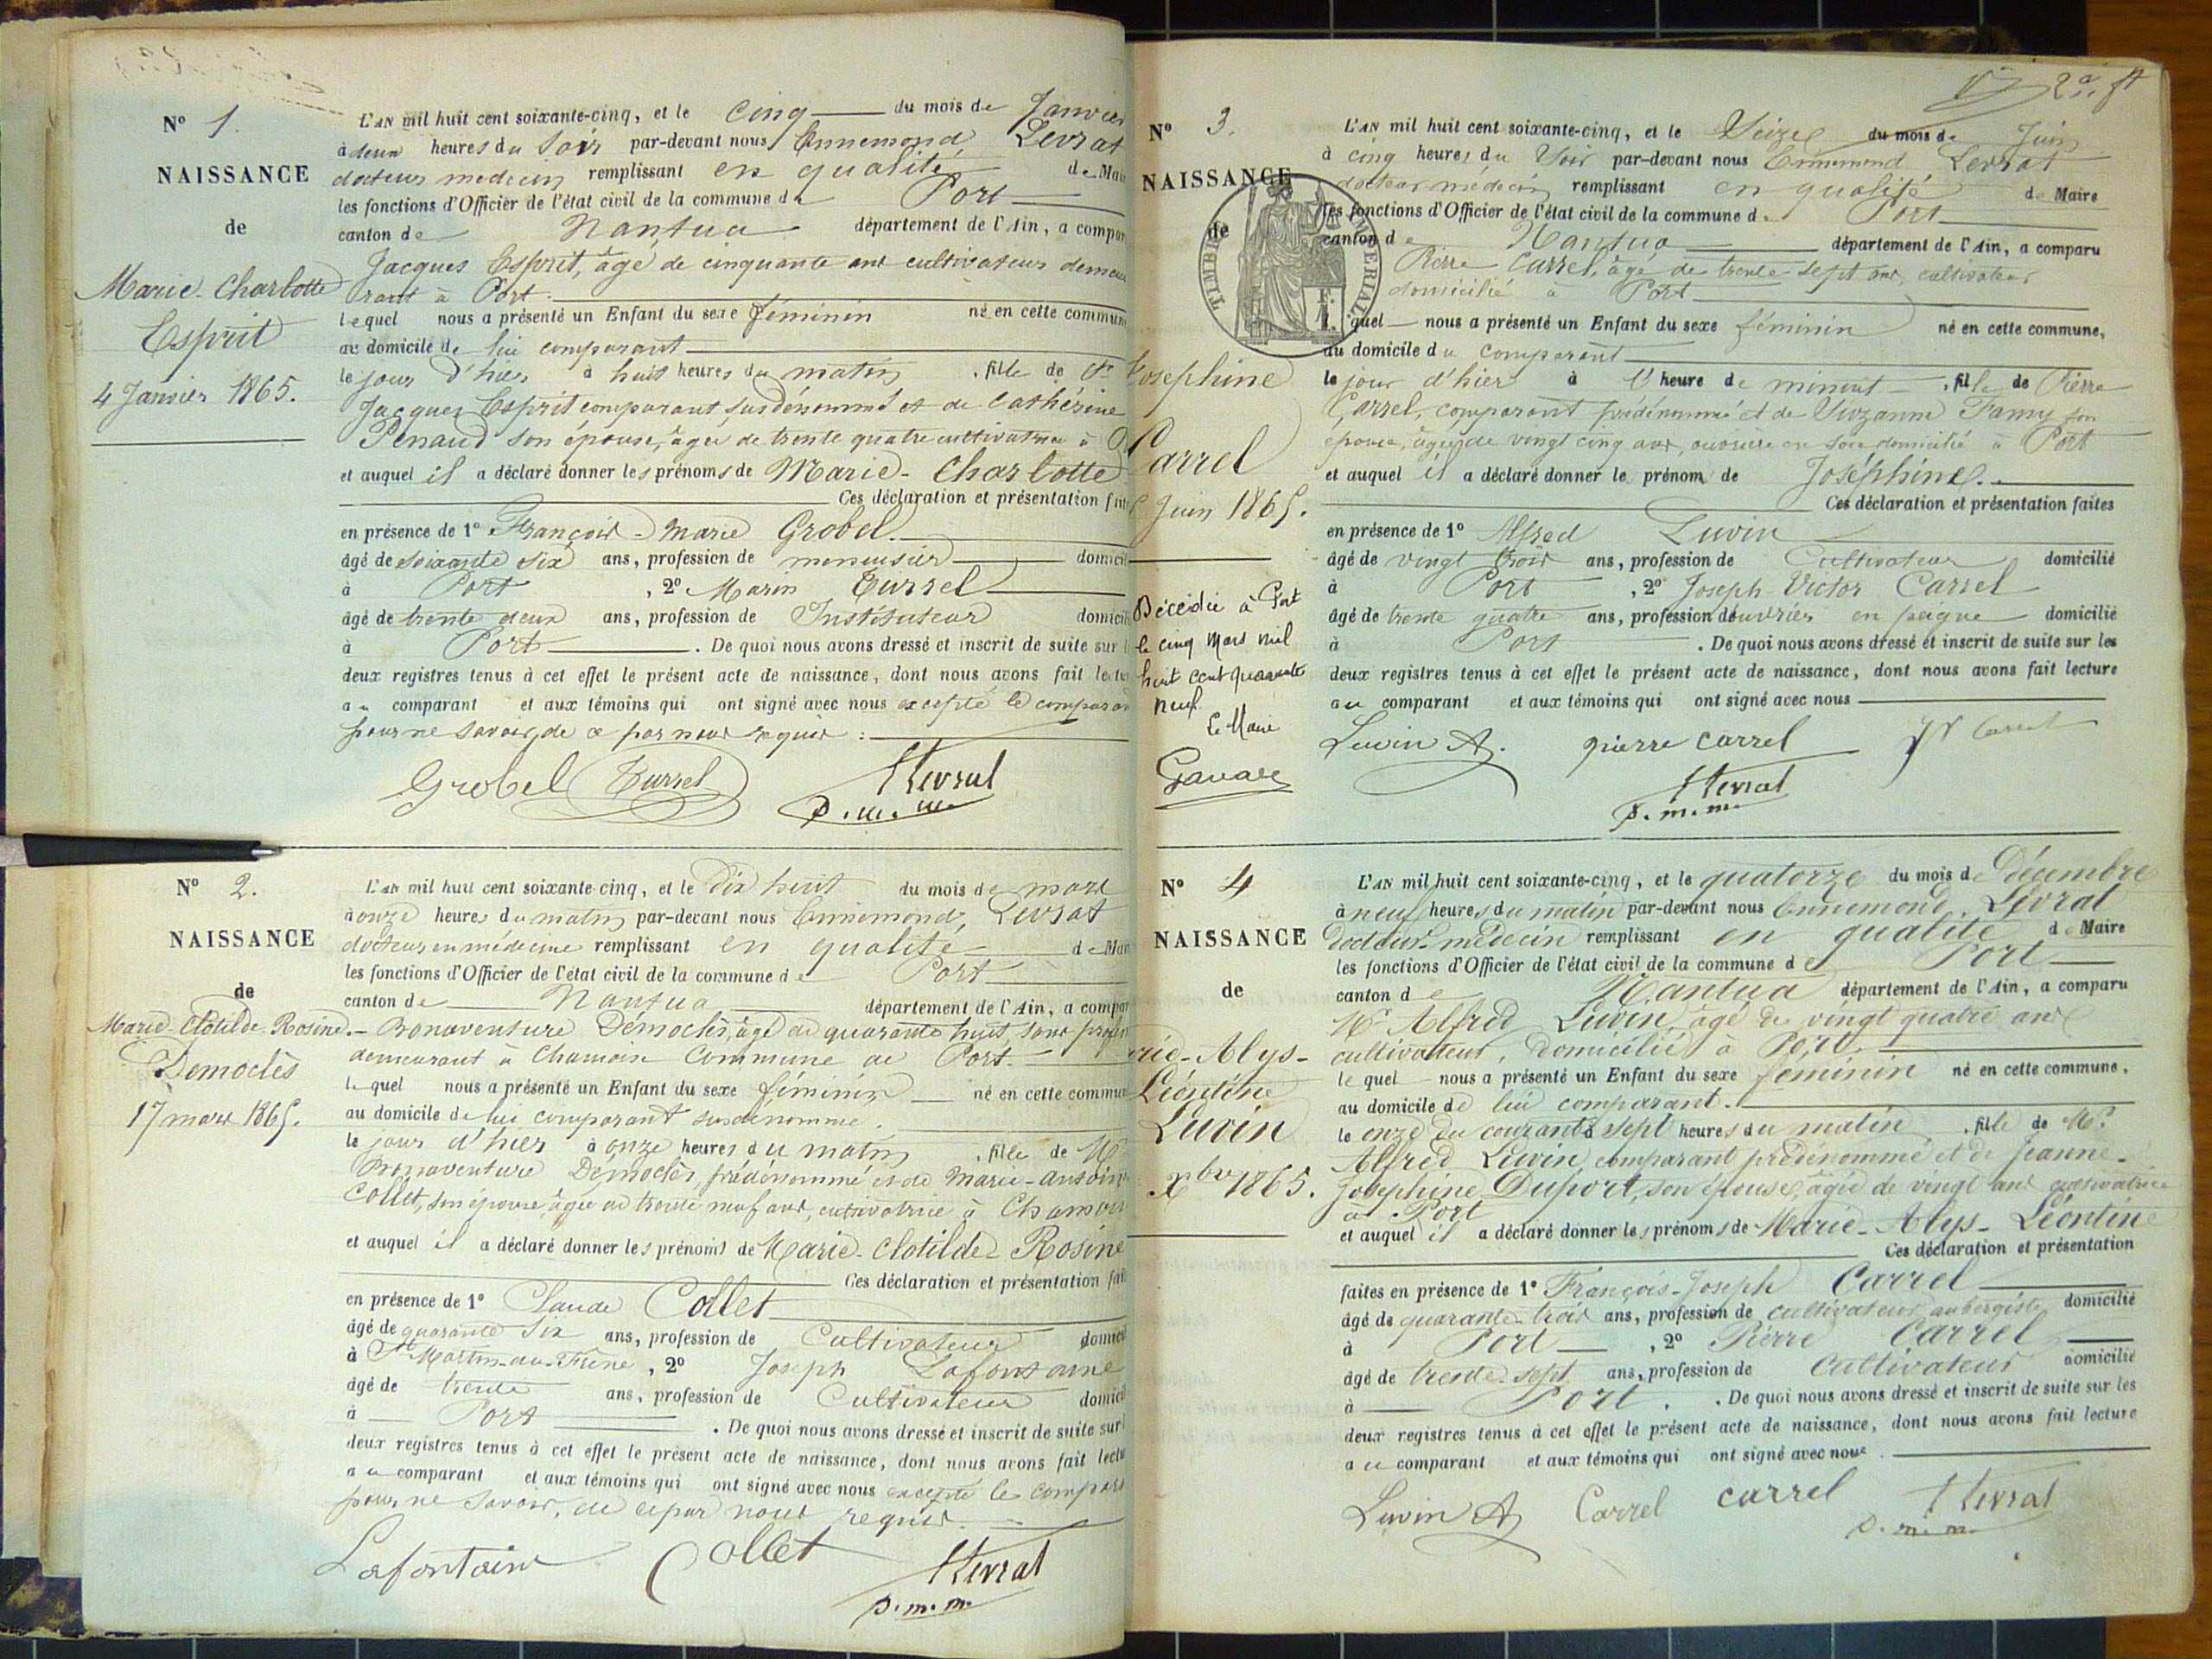 N° 1.
NAISSANCE
de
Marie-Charlotte
Esprit
4 Janvier 1865.
L'AN mil huit cent soixante-cinq, et le cinq du mois de Janvier
à deux heures du soir par-devant nous Ennemond Levrat
docteur médecin remplissant en qualité de Mai
les fonctions d'Officier de l'état civil de la commune de Port
canton de Nantua département de l'Ain, a compar
Jacques Esprit, âgé de cinquante ans cultivateur demeu
rant à Port
lequel nous a présenté un Enfant du sexe féminin né en cette commune
au domicile de lui comparant
le jour d'hier à huit heures du matin, fille de
Jacques Esprit comparant susdénommé et de Catherine
Penaud son épouse, âgée de trente quatre cultivatrice à
et auquel il a déclaré donner les prénoms de Marie-Charlotte
Ces déclaration et présentation fai
en présence de 1° François-Marie Grobel.
âgé de soixante six ans, profession de menuisier domicil
à Port, 2° Marin Turrel
âgé de trente deux ans, profession de Instituteur domicil
à Port. De quoi nous avons dressé et inscrit de suite sur l
deux registres tenus à cet effet le présent acte de naissance, dont nous avons fait lectu
au comparant et aux témoins qui ont signé avec nous excepté le comparan
pour ne savoir, de ce par nous requis :
Grobel Turrel Hevrat
D. m. m.
N° 2.
NAISSANCE
de
Marie-Clotilde-Rosine.
Démoclès
17 mars 1865.
L'AN mil huit cent soixante-cinq, et le dix huit du mois de mars
à onze heures du matin par-devant nous Ennemond, Levrat
docteur en médecine remplissant en qualité de Mai
les fonctions d'Officier de l'état civil de la commune de Port
canton de Nantua département de l'Ain, a compar
Bonaventure Démoclès, âgé de quarante huit sans profes
demeurant à Chamoise Commune de Port.
lequel nous a présenté un Enfant du sexe féminin né en cette commune
au domicile de lui comparant susdénommé.
le jour d'hier à onze heures du matin, fille de Mr
Bonaventure Démoclès, prédénommé et de Marie-Antoin
Collet, son épouse, âgée de trente neuf ans, cultivatrice à Chamoi
et auquel il a déclaré donner les prénoms de Marie-Clotilde-Rosine
Ces déclaration et présentation fai
en présence de 1° Claude Collet
âgé de quarante six ans, profession de Cultivateur domicil
à St Martin-du-Frêne, 2° Joseph Lafontaine
âgé de trente ans, profession de Cultivateur domicil
à Port. De quoi nous avons dressé et inscrit de suite sur l
deux registres tenus à cet effet le présent acte de naissance, dont nous avons fait lectu
au comparant et aux témoins qui ont signé avec nous excepté le compara
pour ne savoir, de ce par nous requis.
Lafontaine Collet Hevrat
D. m. m.
2e ft
N° 3.
NAISSANCE
de
TIMBRE IMPERIAL
Josephine
Carrel
Juin 1865.
Décédée à Port
le cinq Mars mil
huit cent quarante
neuf.
Le Maire
L'AN mil huit cent soixante-cinq, et le Seize du mois de Juin
à cinq heures du Soir par-devant nous Ennemond Levrat
docteur médecin remplissant en qualité de Maire
les fonctions d'Officier de l'état civil de la commune de Port
canton de Nantua département de l'Ain, a comparu
Pierre Carrel, âgé de trente sept ans, cultivateur
domicilié à Port
lequel nous a présenté un Enfant du sexe féminin né en cette commune,
au domicile du comparant
le jour d'hier à l' heure de minuit, fille de Pierre
Carrel, comparant prédénommé et de Suzanne Famy son
épouse, âgée de vingt cinq ans, ouvrière en soie domicilié à Port
et auquel il a déclaré donner le prénom de Joséphine.
Ces déclaration et présentation faites
en présence de 1° Alfred Luvin
âgé de vingt trois ans, profession de Cultivateur domicilié
à Port, 2° Joseph Victor Carrel
âgé de trente quatre ans, profession d'ouvrier en peigne domicilié
à Port. De quoi nous avons dressé et inscrit de suite sur les
deux registres tenus à cet effet le présent acte de naissance, dont nous avons fait lecture
au comparant et aux témoins qui ont signé avec nous
Luvin A. pierre carrel JV Carrel
Hevrat
D. m. m.
N° 4
NAISSANCE
de
rie-Alys-
Léontine
Luvin
Xbre 1865.
L'AN mil huit cent soixante-cinq, et le quatorze du mois de Décembre
à neuf heures du matin par-devant nous Ennemond, Levrat
Docteur-médecin remplissant en qualité de Maire
les fonctions d'Officier de l'état civil de la commune de Port
canton de Nantua département de l'Ain, a comparu
Mr Alfred Luvin, âgé de vingt quatre ans
cultivateur, domicilié à Port.
lequel nous a présenté un Enfant du sexe féminin né en cette commune,
au domicile de lui comparant.
le onze du courant à sept heures du matin, fille de Mr
Alfred Luvin, comparant prédénommé et de Jeanne-
Josephine Duport, son épouse, âgée de vingt ans cultivatrice
à Port
et auquel il a déclaré donner les prénoms de Marie-Alys-Léontine
Ces déclaration et présentation
faites en présence de 1° François-Joseph Carrel
âgé de quarante-trois ans, profession de cultivateur aubergiste domicilié
à Port, 2° Pierre Carrel
âgé de trente-sept ans, profession de Cultivateur domicilié
à Port. De quoi nous avons dressé et inscrit de suite sur les
deux registres tenus à cet effet le présent acte de naissance, dont nous avons fait lecture
au comparant et aux témoins qui ont signé avec nous.
Luvin A Carrel carrel Hevrat
D. m. m.